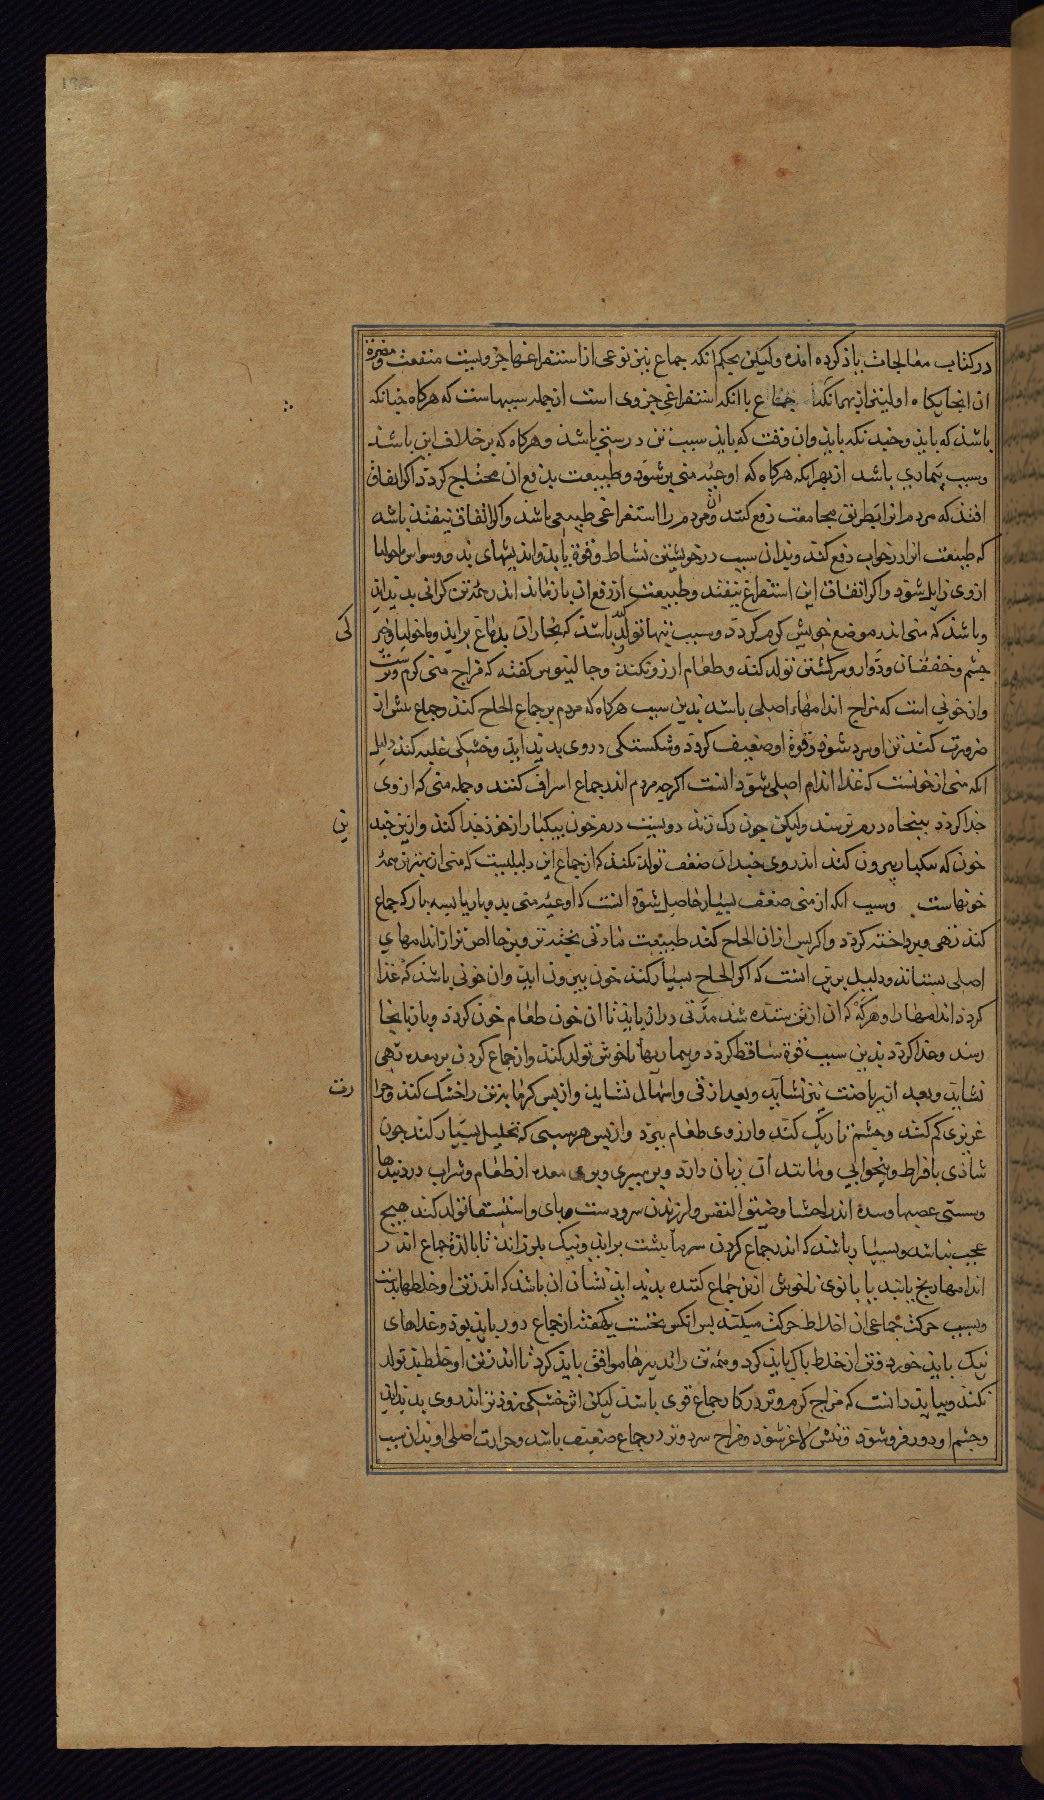 در کتاب معالجات یاذ کرده اند ولیکن بحکم انکه جماع نیز نوعی از استفراغها جزویست منفعت و مضرة
ان اینجا یکاه اولیتر ازبهر انکه جماع با انکه استفراغی جزوی است از جمله سببهاست که هرکاه چنانکه
باشذ که بایذ و چندانکه بایذ وان وقت که بایذ سبب تن درستی باشذ و هرکاه که برخلاف این باشذ
و سبب بیماری باشد ازبهر انکه هرکاه که اوعیه منی پر شود و طبیعت بدفع ان محتاج کردد اکر اتفاق
افتد که مردم انرا بطریق مجامعت دفع کند ان مردم را استفراغی طبیعی باشد و اکر اتفاق نیفتد باشد
که طبیعت انرا در خواب دفع کند و بدان سبب در خویشتن نشاط و قوة یابد و اندیشهای بد و وسواس ماخولیا
از وی زایل شود و اکر اتفاق این استفراغ نیفتد و طبیعت از دفع ان باز ماند اندر همه تن کرانی بدید اید
و باشد که منی اندر موضع خویش کرم کردد و سبب تبها تولد باشد که بخارات بدماغ براید و ماخولیا و خیر
چشم و خفقان و دوار و سرکشتن تولد کند و طعام ارزو نکند و جالینوس کفته که مزاج منی کرم و ترست
وان خونی است که مزاج اندامهاء اصلی باشد بدین سبب هرکاه که مردم بر جماع الحاح کند و جماع بیش از
ضرورت کند تن او سرد شود و قوة او ضعیف کردد و شکستکی در وی بدید اید و خشکی غلبه کند دلیل
انکه منی از خونست که غذا اندام اصلی شود انست اکرچه مردم اندر جماع اسراف کنند و جمله منی که از وی
جدا کردد بپنجاه درم نرسد ولیکن چون رک زند دویست درم خون بیکبار از خوذ جدا کند و از بن چند
خون که بیکبار بیرون کند اندر وی چندان ضعف تولد نکند که از جماع این دلیلیست که منی از بهترین همه
خونهاست و سبب انکه از منی ضعف بسیار حاصل شود انست که اوعیه منی بدو بار یا بسه بار که جماع
کند تهی و پرداخته کردد و اکر پس ازان الحاح کند طبیعت مادتی پخته تر و خالص تر از اندامهای
اصلی بستاند و دلیل برین انست که اکر الحاح بسیار کند خون بیرون اید وان خونی باشد که غذا
کردد اندامها را و هرکه که ان از تن ستده شد مدتی دراز باید تا ان خون طعام خون کردد و باز بانجا
رسد و غذا کردد بدین سبب قوة ساقط کردد و بیماریهاء ناخوش تولد کند و از جماع کردن بر معده تهی
نشاید و بعد از ریاضت نیز نشاید و بعد از قی و اسهال نشاید و از پس کرمابه تن را خشک کند و حرا
غریزی کم کند و چشم تاریک کند و ارزوی طعام ببرد و از پس هر سببی که تحلیل بسیار کند چون
شاذی بافراط و بیخوابی و مانند ان زیان دارد و بر سیری و پری معده از طعام و شراب دردبندها
و سستی عصبها و سده اندر احشا و ضیق النفس و لرزیدن سر و دست و پای و استسقا تولد کند هیچ
عجب نباشد و بسیار باشد که اندر جماع کردن سرما بپشت براید و نیک بلرزاند تا با لذة جماع اندر
اندامها رنج یابد یا بانوی ناخوش از تن جماع کننده بدید اید نشان ان باشد که اندر تن او خلطها بدست
و سبب حرکت جماعی ان اخلاط حرکت میکند پس انکس نخست یکهفته از جماع دور باید بود و غذاهای
نیک باید خورد و تن از خلط پاک باید کرد و همه تن را تدبیرها موافق باید کرد تا اندر تن او خلط بد تولد
نکند و بباید دانست که مزاج کرم و تر در کار جماع قوی باشد لیکن اثر خشکی زودتر اندر وی بدید اید
و چشم او دور فرو شود و تنش لاغر شود و مزاج سرد و تر در جماع ضعیف باشد و حرارت اصلی او بدان سبب